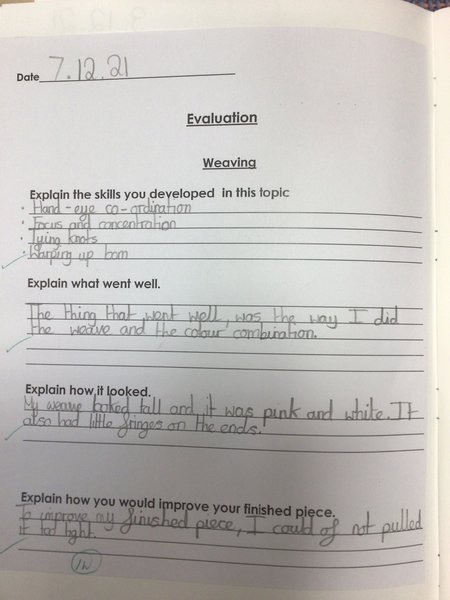 Date 7.12.21
Evaluation
Weaving
Explain the skills you developed in this topic
• Hand-eye co-ordination
• Focus and concentration
• Tying knots
• Warping up bom
Explain what went well.
The thing that went well, was the way I did
the weave and the colour combination.
Explain how it looked.
My weave looked tall and it was pink and white. It
also had little fringes on the ends.
Explain how you would improve your finished piece.
To improve my finished piece, I could of not pulled
it too tight.